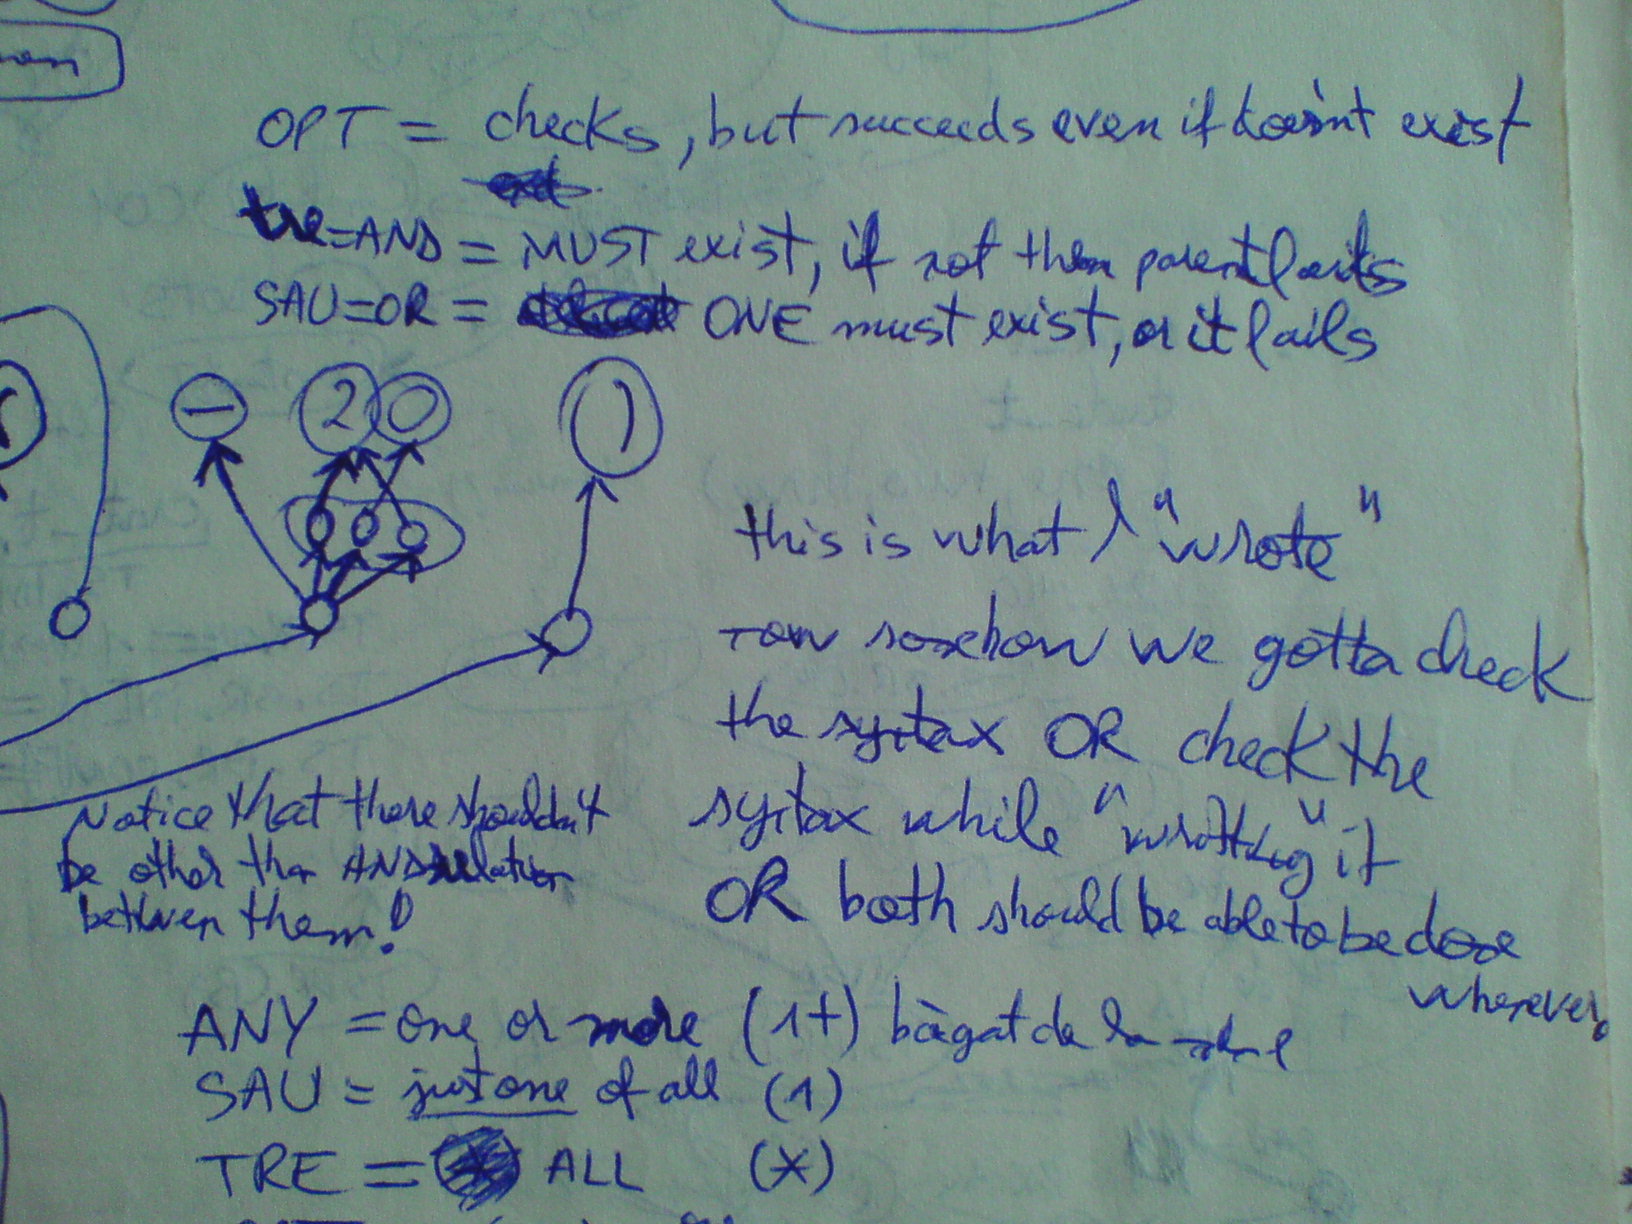 OPT = checks, but succeeds even if doesn't exist
tre=AND = MUST exist, if not then parent fails
SAU=OR = ONE must exist, or it fails
— 2 0 )
this is what I "wrote"
now somehow we gotta check
the sytax OR check the
sytax while "writting" it
OR both should be able to be done
wherever.
Notice that there shouldn't
be other than AND relation
between them!
ANY = one or more (1+) băgat de la
SAU = just one of all (1)
TRE = ALL (*)